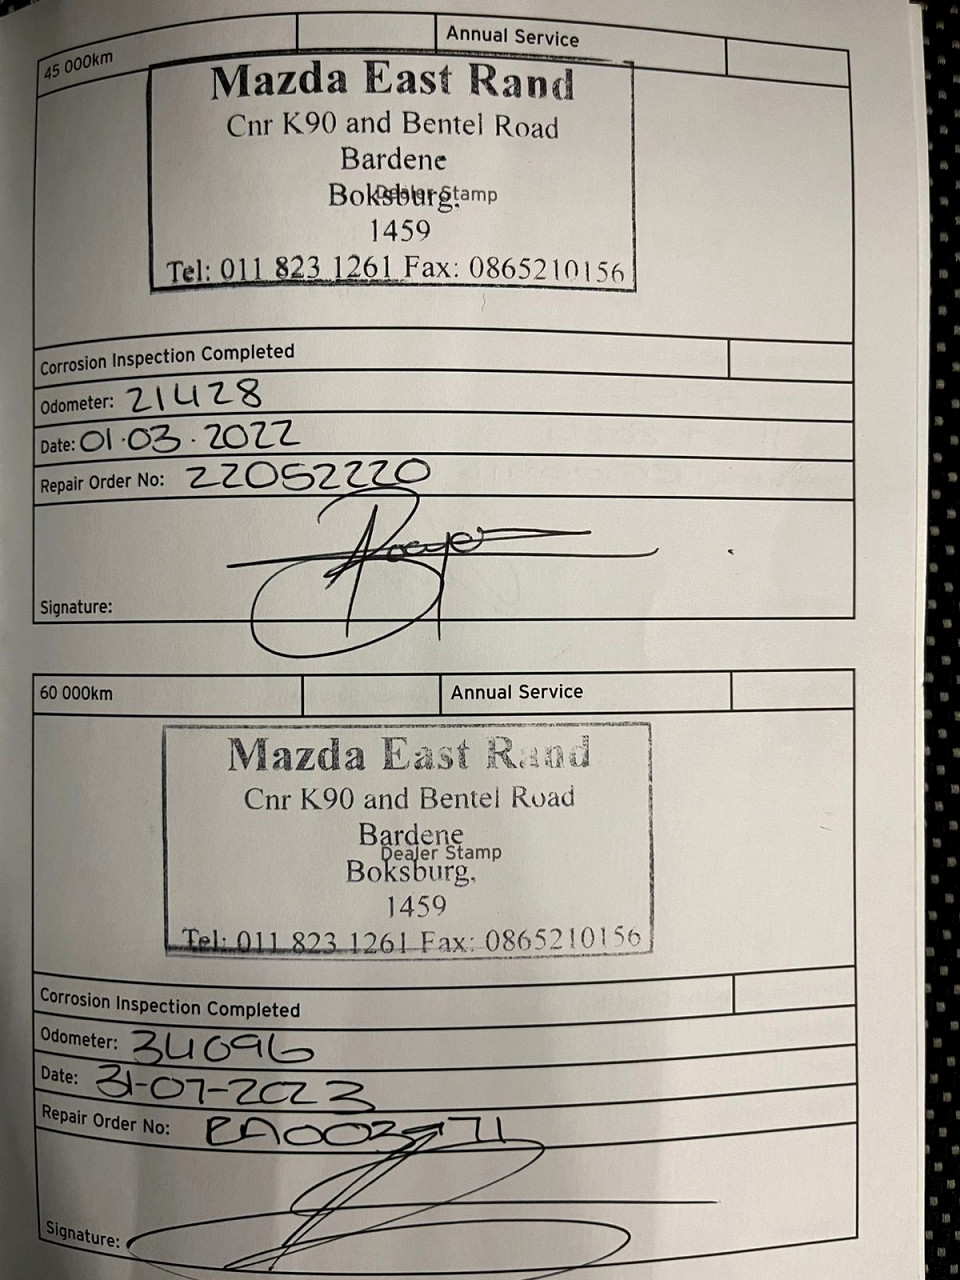 45 000km Annual Service
Mazda East Rand
Cnr K90 and Bentel Road
Bardene
Dealer Stamp
Boksburg,
1459
Tel: 011 823 1261 Fax: 0865210156
Corrosion Inspection Completed
Odometer: 21428
Date: 01·03·2022
Repair Order No: 22052220
Signature:
60 000km Annual Service
Mazda East Rand
Cnr K90 and Bentel Road
Bardene
Dealer Stamp
Boksburg,
1459
Tel: 011 823 1261 Fax: 0865210156
Corrosion Inspection Completed
Odometer: 34096
Date: 31-07-2023
Repair Order No:
Signature: